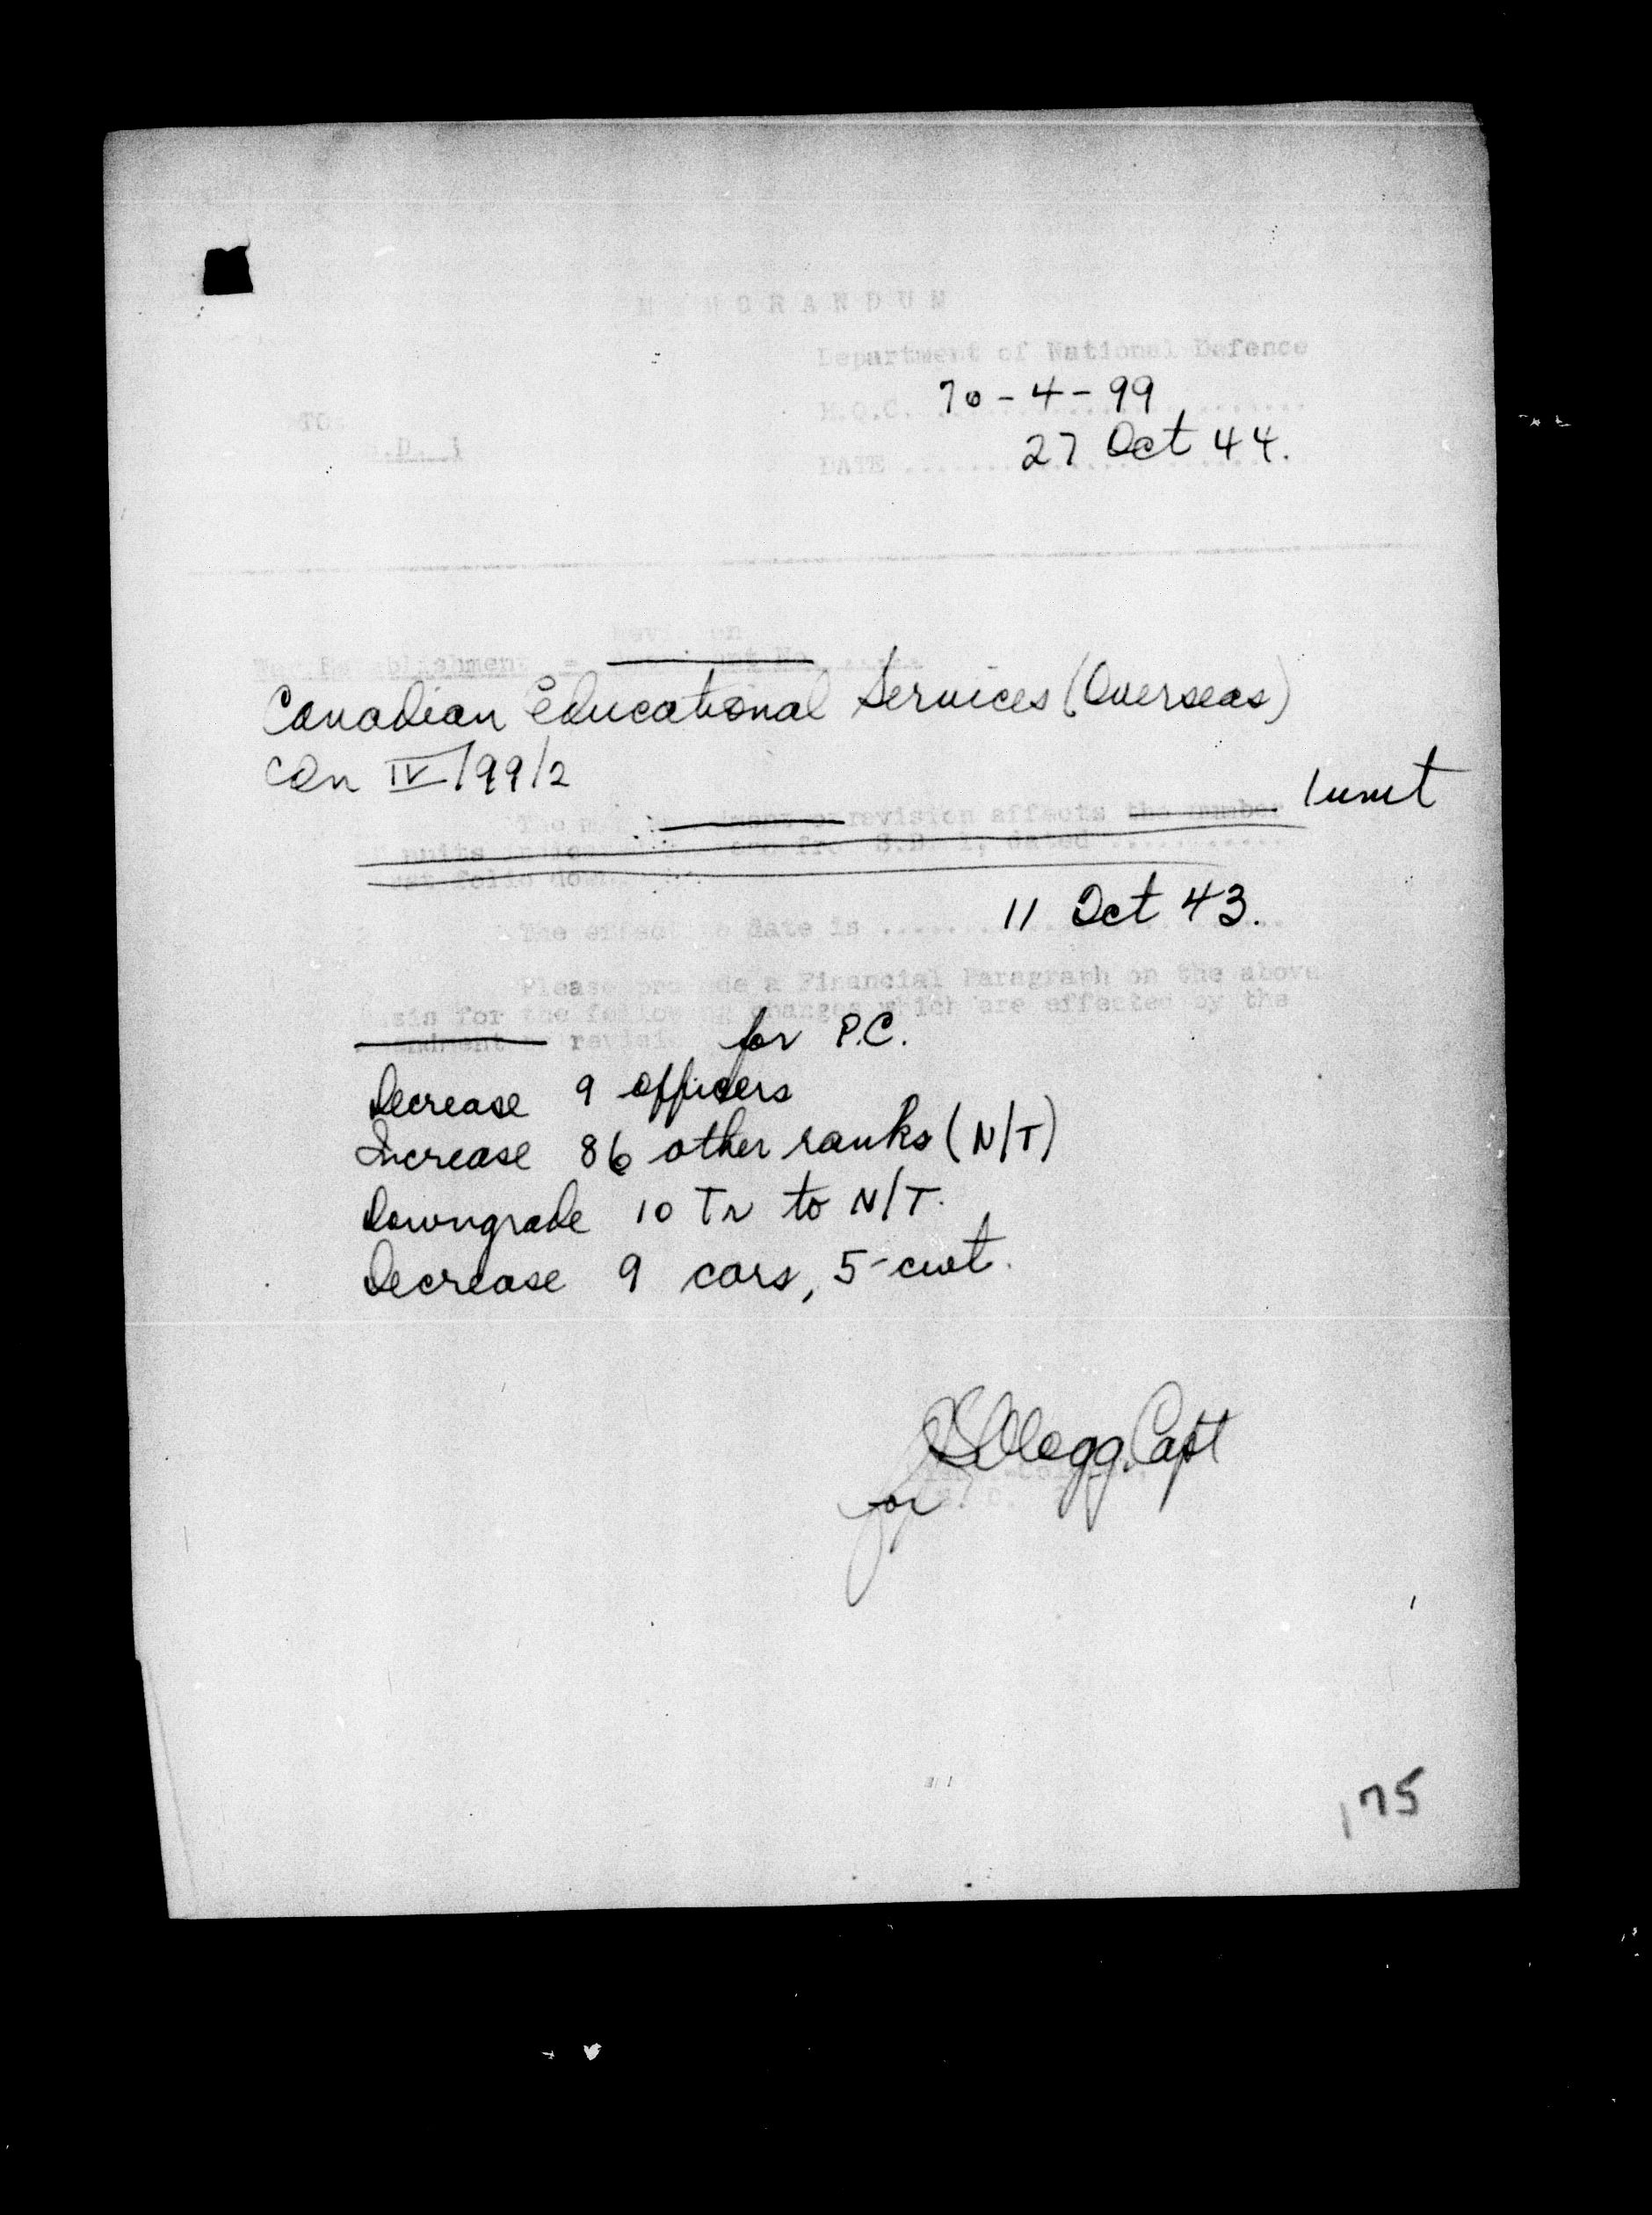 MEMORANDUM
Department of National Defence
H.Q.C. 70-4-99
TO
DATE 27 Oct 44.
Revision
War Establishment -
Canadian Educational Services (Overseas)
Cdn IV/99/2
revision affects the number 1 unit
units dated ...........
The effective date is 11 Oct 43.
Please provide a Financial Paragraph on the above
basis for the following changes which are effected by the
amendment or revision
for P.C.
Decrease 9 officers
Increase 86 other ranks (N/T)
Downgrade 10 Tr to N/T.
Decrease 9 cars, 5-cwt.
Kellogg. Capt
for
175